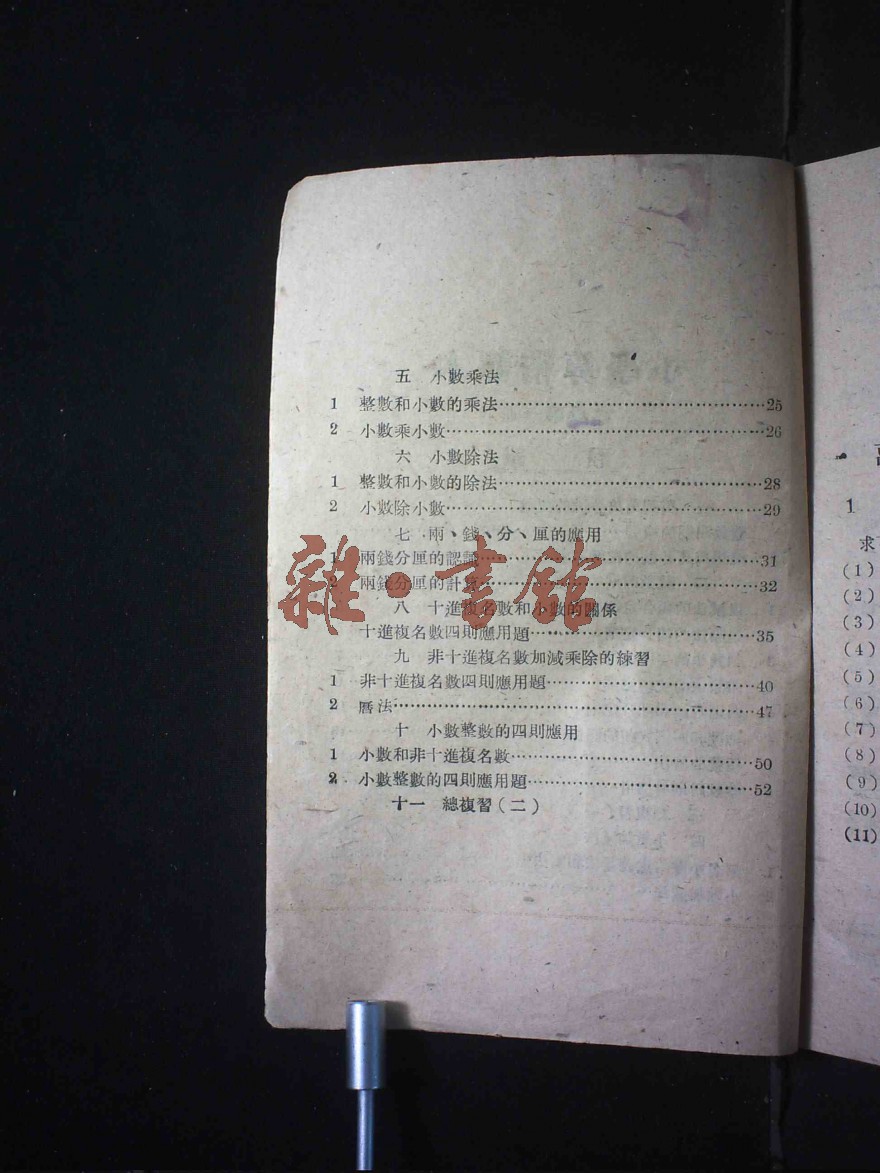 五　小數乘法
1　整數和小數的乘法……………………25
2　小數乘小數……………………26
六　小數除法
1　整數和小數的除法……………………28
2　小數除小數……………………29
七　兩、錢、分、厘的應用
1　兩錢分厘的認識……………………31
2　兩錢分厘的計算……………………32
八　十進複名數和小數的關係
十進複名數四則應用題……………………35
九　非十進複名數加減乘除的練習
1　非十進複名數四則應用題……………………40
2　曆法……………………47
十　小數整數的四則應用
1　小數和非十進複名數……………………50
2　小數整數的四則應用題……………………52
十一　總複習(二)
雜·書館
1
求
(1)
(2)
(3)
(4)
(5)
(6)
(7)
(8)
(9)
(10)
(11)